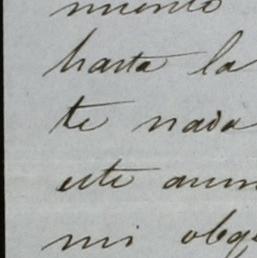 miento
hasta la
te nada
este
mi